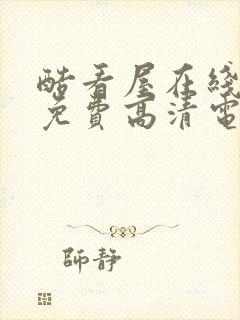 酷看屋在线
免費高清電
師靜